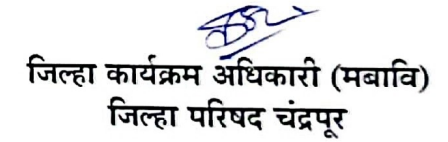 जिल्हा कार्यक्रम अधिकारी (मबावि)
जिल्हा परिषद चंद्रपूर